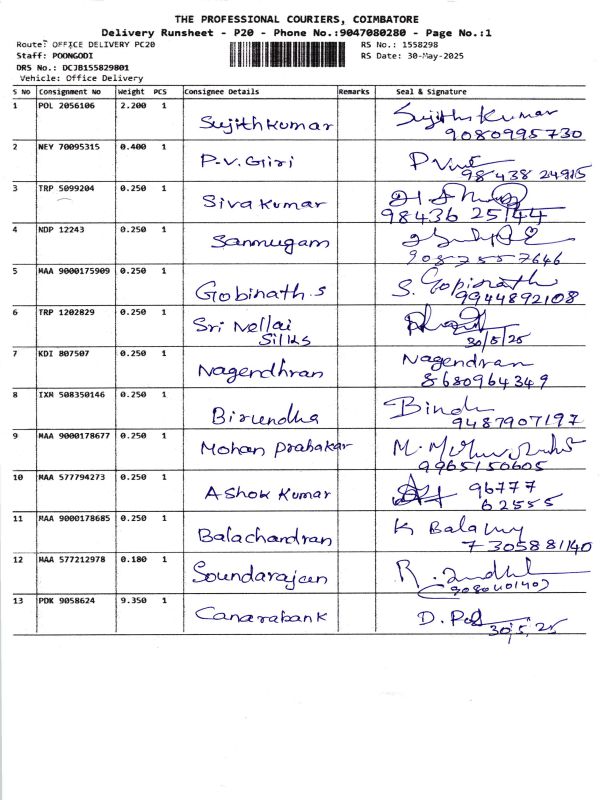 THE PROFESSIONAL COURIERS, COIMBATORE
Delivery Runsheet - P20 - Phone No.:9047080280 - Page No.:1
Route: OFFICE DELIVERY PC20
RS No.: 1558298
Staff: POONGODI
RS Date: 30-May-2025
DRS No.: DCJB155829801
Vehicle: Office Delivery
S No Consignment No Weight PCS Consignee Details Remarks Seal & Signature
1 POL 2056106 2.200 1 Sujithkumar Sujithkumar
9080995730
2 NEY 70095315 0.400 1 P.V. Giri
98438 24915
3 TRP 5099204 0.250 1 Siva Kumar
98436 25144
4 NDP 12243 0.250 1 Sanmugam
9087557646
5 MAA 9000175909 0.250 1 Gobinath.s S. Gopinath
9944892108
6 TRP 1202829 0.250 1 Sri Nellai
Silks
30/5/25
7 KDI 807507 0.250 1 Nagendhran Nagendran
8680964349
8 IXM 508350146 0.250 1 Birundha
9487907197
9 MAA 9000178677 0.250 1 Mohan Prabakar
9965150605
10 MAA 577794273 0.250 1 Ashok Kumar 96777
62555
11 MAA 9000178685 0.250 1 Balachandran K Bala
7305881140
12 MAA 577212978 0.180 1 Soundarajan
13 PDK 9058624 9.350 1 Canarabank D.
30/5/25